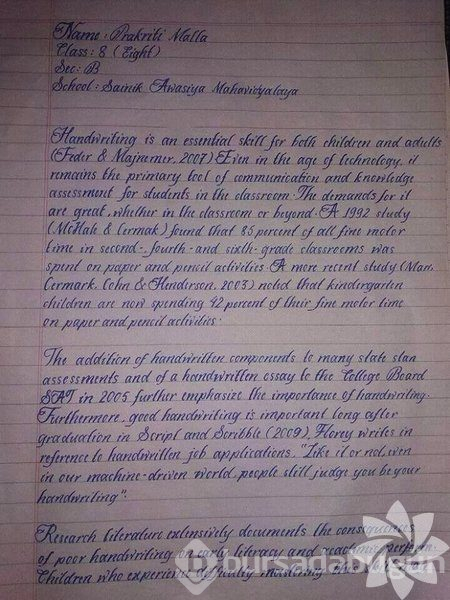 Name : Prakriti Malla
Class : 8 (Eight)
Sec : B
School : Sainik Awasiya Mahavidyalaya
Handwriting is an essential skill for both children and adults
(Feder & Majnemer, 2007) Even in the age of technology, it
remains the primary tool of communication and knowledge
assessment for students in the classroom. The demands for it
are great, whether in the classroom or beyond. A 1992 study
(McHale & Cermak) found that 85 percent of all fine motor
time in second-, fourth- and sixth-grade classrooms was
spent on paper and pencil activities. A more recent study (Marr,
Cermark, Cohn & Henderson, 2003) noted that kindergarten
children are now spending 42 percent of their fine motor time
on paper and pencil activities.
The addition of handwritten components to many state stan
assessments and of a handwritten essay to the College Board
SAT in 2005 further emphasize the importance of handwriting.
Furthermore, good handwriting is important long after
graduation in Script and Scribble (2009), Florey writes in
reference to handwritten job applications, "Like it or not, even
in our machine-driven world, people still judge you be your
handwriting".
Research literature extensively documents the consequences
of poor handwriting on early literacy and academic perform-
Children who experience difficulty mastering this
bursadabugun